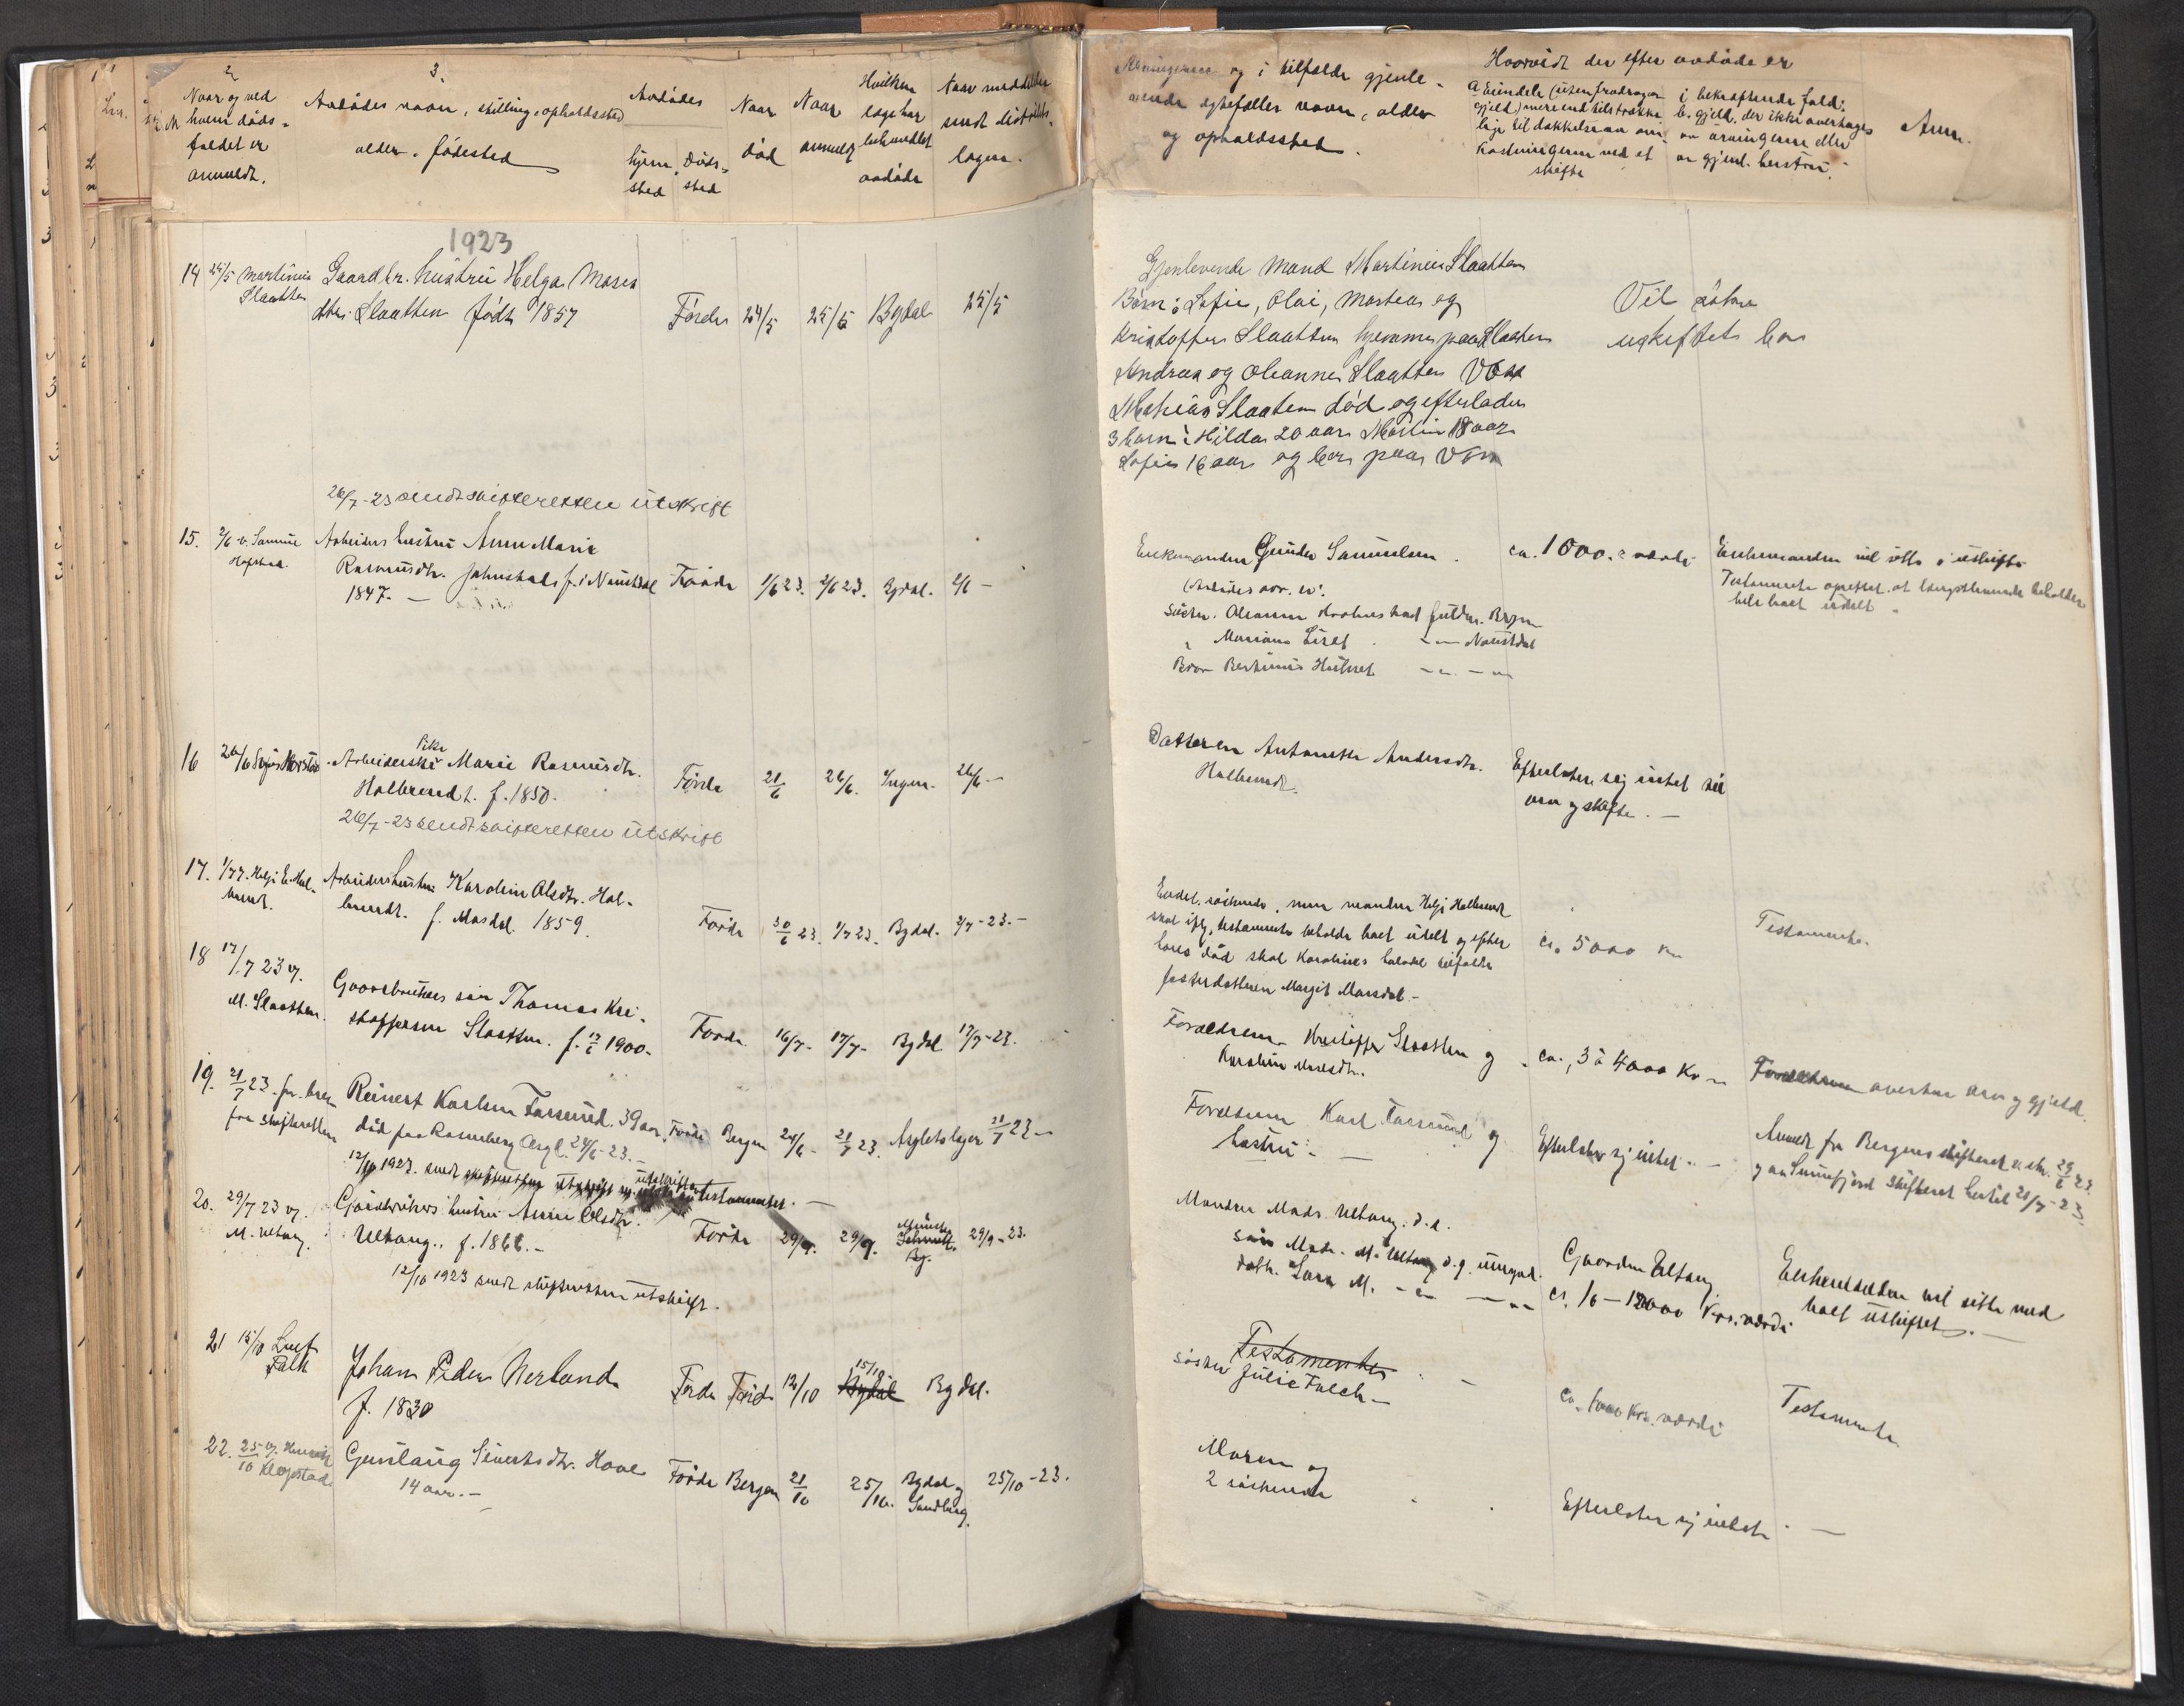 2.
Naar og ved
hvem døds-
faldet er
anmeldt.
3.
Avdødes navn, stilling, opholdssted
alder, fødested
Avdødes
hjem sted
døds- sted
Naar
død
Naar
anmeldt
Hvilken
læge har
behandlet
avdøde
Naar meddelelse
sendt distrikts-
lægen.
Arvingernes og i tilfælde gjenle-
vende egtefælles navn, alder
og opholdssted.
Hvorvidt der efter avdøde er
a. Eiendele (uten fradrag av
gjeld) mere end tilstrække-
lige til dækkelse av om-
kostningerne ved et
skifte
i bekræftende fald:
b. gjeld, der ikke overtages
av arvingerne eller
av gjenl. hustru.
Anm.
1923
14 25/5 Martinus
Slaatten
Gaardbr. hustru Helga Moses
dtr. Slaatten født 1857
Førde 24/5 25/5 Bydal 25/5
Gjenlevende Mand Martinus Slaatten
Børn: Sofie, Olai, Mosteas og
Kristoffer Slaatten hjemme paa Slaatten
Andreas og Oleanne Slaatten Voss
Mathias Slaatten død og efterlader
3 barn: Hilda 20 aar Martin 18 aar
Sofie 16 aar og bor paa Voss
Vil sitte
uskiftet bo
26/7-23 sendt skifteretten utskrift
15. 2/6 v. Samuel
Hafstad.
Arbeiders hustru Anne Marie
Rasmusdtr. Jahnstals f. i Naustdal
1847. —
Førde 1/6 23. 2/6 23. Bydal. 2/6 —
Enkemanden Gunder Samuelsen.
(Avdødes arv. er:
Søster. Oleanne Hootnes bad gutdn. Bergen
" Mariane Liset — " — Naustdal
Bror Bertinius Hultset — " — "
ca. 1000.- værdi
Enkemanden vil sitte i uskifte
Testamente oprettet at længstlevende beholder
hele boet udelt.
16 26/6 Sofus Hafstad.
Pike
Arbeiderske Marie Rasmusdtr.
Halbrendt. f. 1850.
Førde 21/6 26/6. Ingen. 26/6 —
26/7-23 sendt skifteretten utskrift
Datteren Antonette Andersdtr.
Halbrendt.
Efterlater sig intet til
arv og skifte. —
17. 1/7 23. Helje E. Hal-
brendt.
Arbeiders hustru Karoline Olsdtr. Hal-
brendt. f. Mosdal. 1859.
Førde 30/6 23. 1/7 23. Bydal. 2/7-23.—
Endel søskende, men manden Helje Halbrendt
skal iflg. testamente beholde boet udelt og efter
hans død skal Karolines halvdel tilfalde
fosterdatteren Margit Mosdal.—
ca. 5000 kr
Testamente.
18 17/7 23 v.
M. Slaatten.
Gaardbrukers søn Thomas Kri-
stoffersen Slaatten. f. 12/6 1900.
Førde 16/7- 17/7- Bydal 17/7-23.
Forældrene Kristoffer Slaatten og
Karoline Mosesdtr.
ca., 3 à 4000 Kr.
Forældrene overtar arv og gjeld.
19. 21/7 23. fr. brev
fra skifteretten
Reinert Karlsen Farsund. 39 aar.
død paa Rosenberg Asyl. 24/6-23.—
Førde Bergen 24/6- 21/7 23. Asylets læge 21/7 23.—
Forældrene Karl Farsund og
hustru: —
Efterlater sig intet. —
Anmeldt fra Bergens skifteret v. skr. 29/6 23.
og av Sunnfjord skifteret hertil 21/7-23.
12/10 1923. sendt skifteretten utskrift testamentet. —
20. 29/9 23 v.
M. Ultang.
Gaardbrukers hustru Anne Olsdtr.
Ultang. f. 1866.—
Førde 29/9. 29/9. Münster
Schmidt
Bg. 29/9-23.
12/10 1923 sendt skifteretten utskrift.
Manden Mads Ultang. d.e.
søn Mads. M. Ultang d.y. umynd.
datter Lara M. — " — — "
Gaarden Ultang
ca. 10—12000 Kr. værdi
Enkemanden vil sitte med
boet uskiftet. —
21 15/10 Lars
Falk
Johan Peder Nerland
f. 1830
Førde Førde 12/10 15/10 Bydal Bydal.
Testamente
søster Julie Falch.—
ca. 1000 Kr. værdi
Testamente
22. 25/10 v. Henrik
Klopstad
Gunlaug Sivertsdtr. Hove
14 aar. —
Førde Bergen 21/10 25/10. Bydal og
Sandberg. 25/10-23.
Moren og
2 søskende
Efterlater sig intet. —